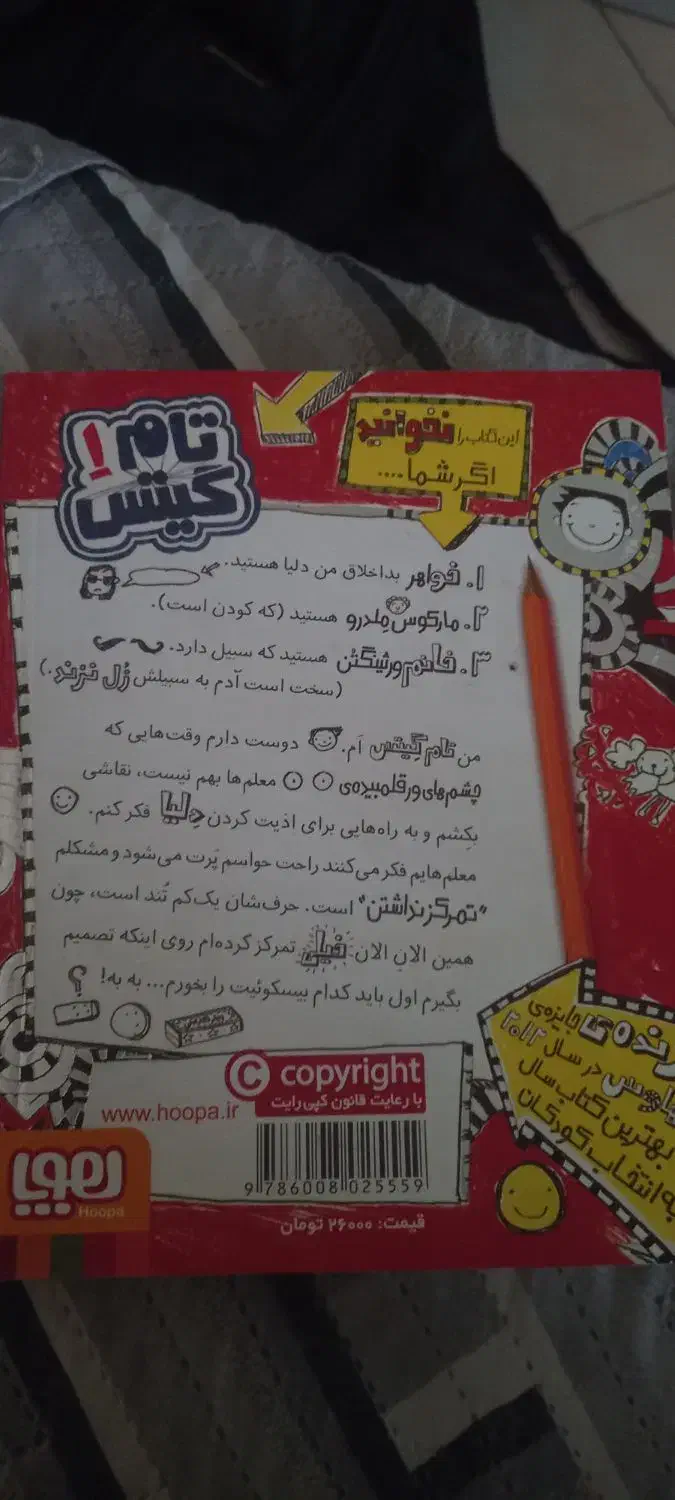 تام گیتس ۱
این کتاب را نخوانید
اگر شما....
۱. خواهر بداخلاق من دلیا هستید.
۲. مارکوس مِلدرو هستید (که کودن است).
۳. خانم ورثینگتن هستید که سبیل دارد.
(سخت است آدم به سبیلش زُل نزند.)
من تام گیتس اَم. دوست دارم وقت‌هایی که
چشم‌های ورقلمبیده‌ی معلم‌ها بهم نیست، نقاشی
بکِشم و به راه‌هایی برای اذیت کردن دِلیا فکر کنم.
معلم‌هایم فکر می‌کنند راحت حواسم پَرت می‌شود و مشکلم
"تمرکز نداشتن" است. حرف‌شان یک‌کم تُند است، چون
همین الانِ الان خیلی تمرکز کرده‌ام روی اینکه تصمیم
بگیرم اول باید کدام بیسکوئیت را بخورم... به به!
؟
جایزه‌ی
در سال ۲۰۱۲
بهترین کتاب سال
به انتخاب کودکان
© copyright
با رعایت قانون کپی رایت
www.hoopa.ir
9 786008 025559
هوپا
Hoopa
قیمت: ۲۶۰۰۰ تومان